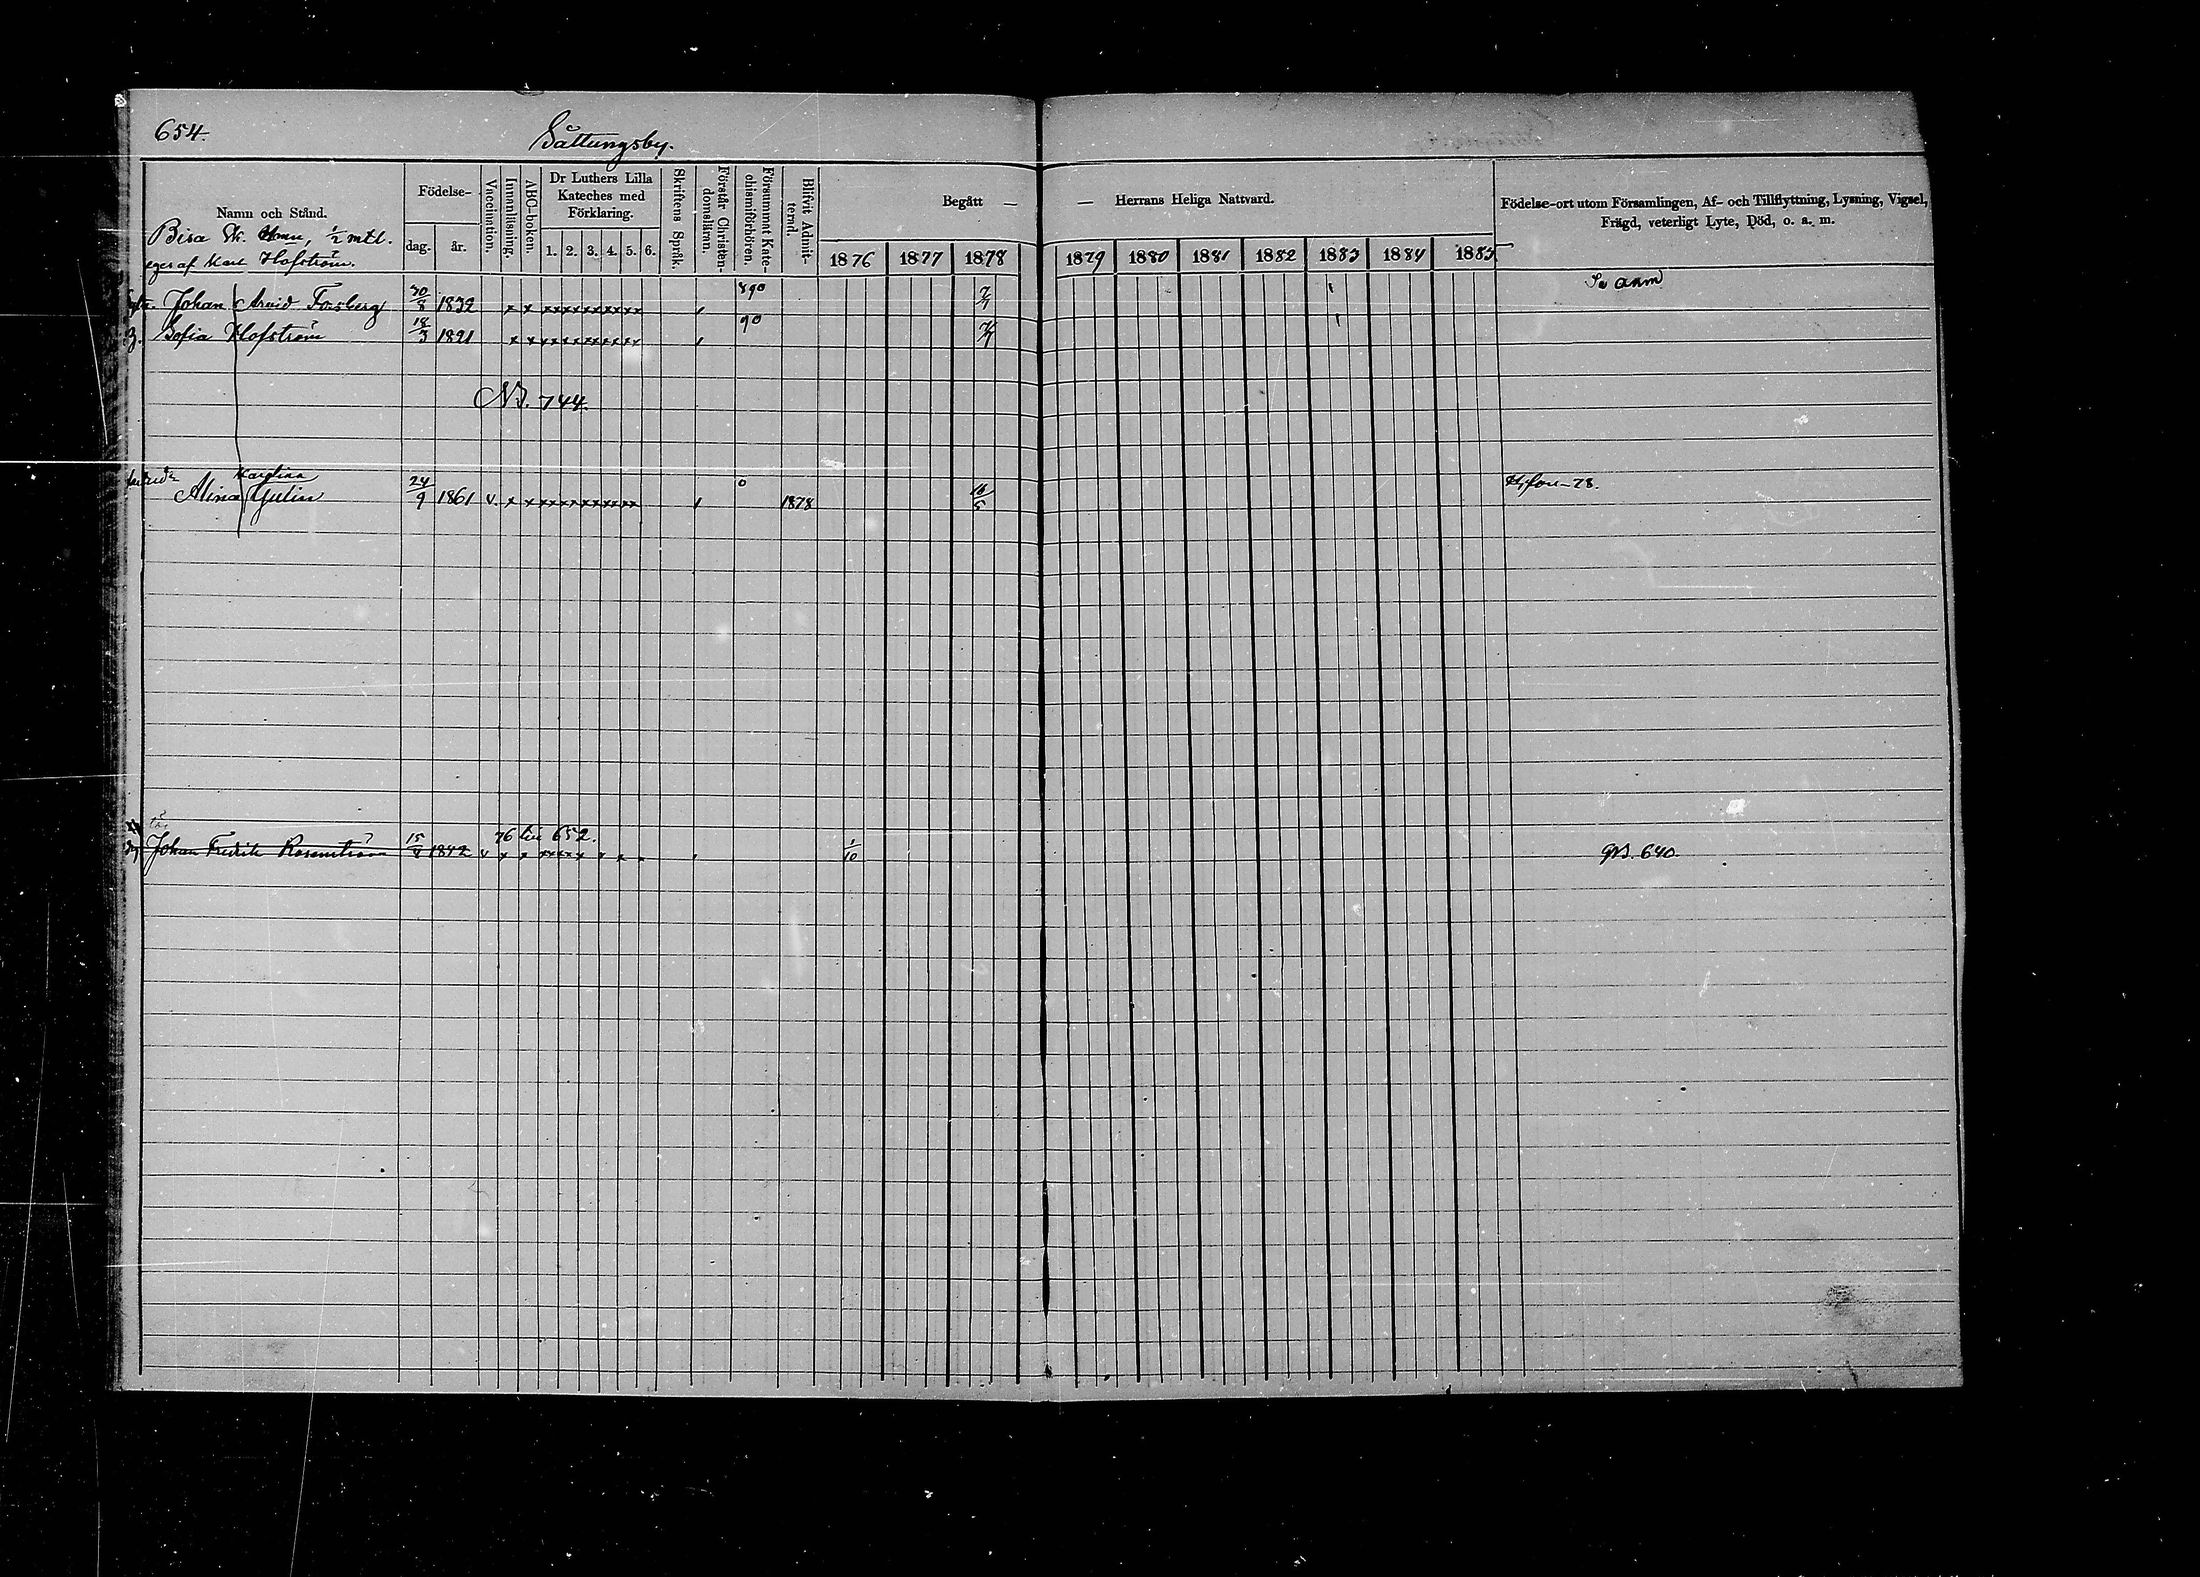 654.
Såttungsby.
Namn och Stånd.
Födelse-
dag.
år.
Vaccination.
Innanläsning.
ABC-boken.
Dr Luthers Lilla
Kateches med
Förklaring.
1. 2. 3. 4. 5. 6.
Skriftens Språk.
Förstår Christen-
domsläran.
Försummat Kate-
chismiförhören.
Blifvit Admit-
terad.
Begått —
— Herrans Heliga Nattvard.
1876 1877 1878 1879 1880 1881 1882 1883 1884 1885
Födelse-ort utom Församlingen, Af- och Tillflyttning, Lysning, Vigsel,
Frägd, veterligt Lyte, Död, o. a. m.
Bisa Sk. ½ mtl.
eges af Karl Hofström.
Johan Arvid Forsberg 30/8 1832 x x xxxxxxxxxx 890 7/7 Se anm
Sofia Hofström 18/3 1821 x x xxxxxxxxxx 90
N3. 744.
Karolina
Alina Gulin 24/9 1861 v. x x xxxxxxxxxx 0 1878 16/5
76 till 652.
Johan Fredrik Rosenström 15/4 1842 v x x xxxxx x x x 1/10 640.